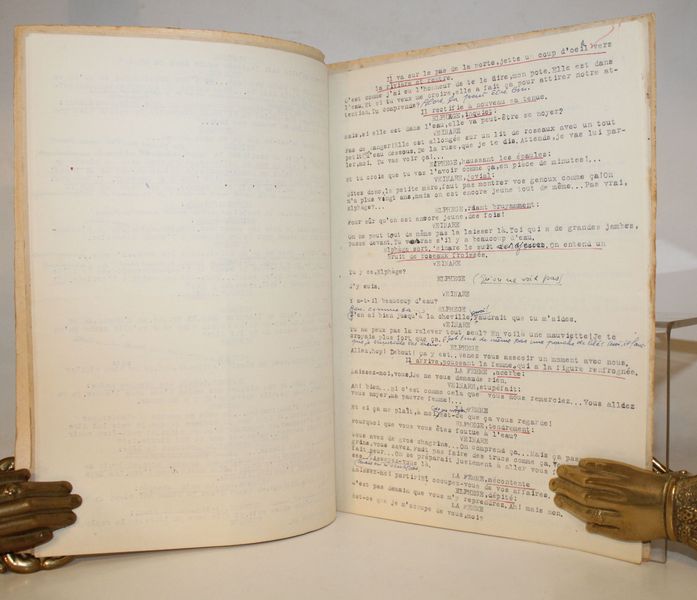 Il va sur le pas de la porte, jette un coup d'oeil vers
la rivière et rentre.
C'est comme j'ai eu l'honneur de te le dire, mon pote. Elle est dans
l'eau. Et si tu veux me croire, elle a fait ça pour attirer notre at-
tention. Tu comprends?
Il rectifie à nouveau sa tenue.
ELPHEGE, inquiet:
Mais, si elle est dans l'eau, elle va peut-être se noyer?
VEINARE
Pas de danger! Elle est allongée sur un lit de roseaux avec un tout
petit d'eau dessous. De la ruse, que je te dis. Attends, je vas lui par-
ler, moi. Tu vas voir ça!...
ELPHEGE, haussant les épaules:
Et tu crois que tu vas l'avoir comme ça, en pièce de minutes!...
VEINARE, jovial:
Dites donc, la petite mère, faut pas montrer vos genoux comme ça! On
n'a plus vingt ans, mais on est encore jeune tout de même... Pas vrai,
Elphège?...
ELPHEGE, riant bruyamment:
Pour sûr qu'on est encore jeune, des fois!
VEINARE
On ne peut tout de même pas la laisser là. Toi qui a de grandes jambes,
passe devant. Tu verras s'il y a beaucoup d'eau.
Elphège sort, Veinare le suit on entend un
bruit de roseaux froissés.
VEINARE
Tu y es, Elphège?
ELPHEGE (qu'on ne voit pas)
J'y suis.
VEINARE
Y a-t-il beaucoup d'eau?
ELPHEGE
J'en ai bien jusqu'à la cheville, faudrait que tu m'aides.
VEINARE
Tu ne peux pas la relever tout seul? En voilà une mauviette! Je te
croyais plus fort que ça.
ELPHEGE
Allez, hop! Debout! ça y est.. venez vous asseoir un moment avec nous.
Il arrive, poussant la femme, qui a la figure renfrognée.
LA FEMME, acerbe:
Laissez-moi, vous, Je ne vous demande rien.
VEINARE, stupéfait:
Ah! bien... si c'est comme cela que vous nous remerciez... Vous alliez
vous noyer, ma pauvre femme!...
LA FEMME
Et si ça me plaît, à moi, Est-ce que ça vous regarde!
ELPHEGE, tendrement:
Pourquoi que vous vous êtes foutue à l'eau?
VEINARE
Vous avez de gros chagrins... On comprend ça... Mais ça pas
fait peur... On se préparait justement à aller vous
Asseyez-vous là.
LA FEMME, mécontente
Laissez-moi partir! Et occupez-vous de vos affaires.
ELPHEGE, dépité:
C'est pas demain que vous m'y reprendrez, Ah! mais non.
LA FEMME
Est-ce que je m'occupe de vous, moi?